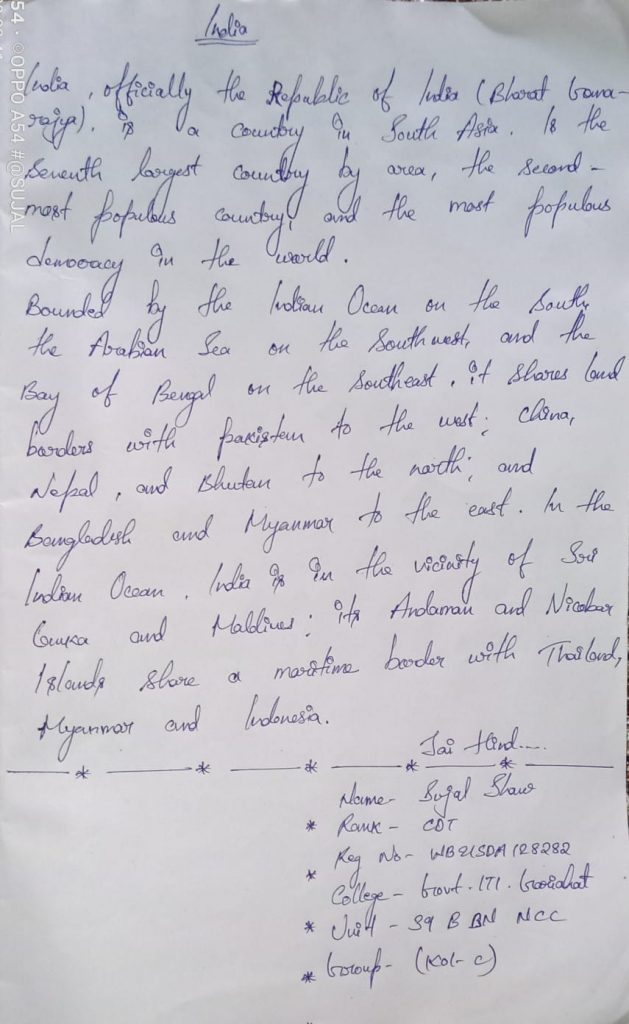 India
India, officially the Republic of India (Bharat Gana-
rajya). is a country in South Asia. Is the
Seventh largest country by area, the second-
most populous country, and the most populous
democracy in the world.
Bounded by the Indian Ocean on the South,
the Arabian Sea on the Southwest, and the
Bay of Bengal on the Southeast, it shares land
borders with pakistan to the west; China,
Nepal, and Bhutan to the north; and
Bangladesh and Myanmar to the east. In the
Indian Ocean. India is in the vicinity of Sri
Lanka and Maldives; its Andaman and Nicobar
Islands share a maritime border with Thailand,
Myanmar and Indonesia.
Jai Hind....
* * * * *
Name- Sujal Shaw
* Rank - CDT
Reg No- WB21SDA128282
* College - Govt. ITI. Gariahat
* Unit - 39 B BN NCC
* Group- (Kol- C)
54 · ©OPPO A54 #@SUJAL